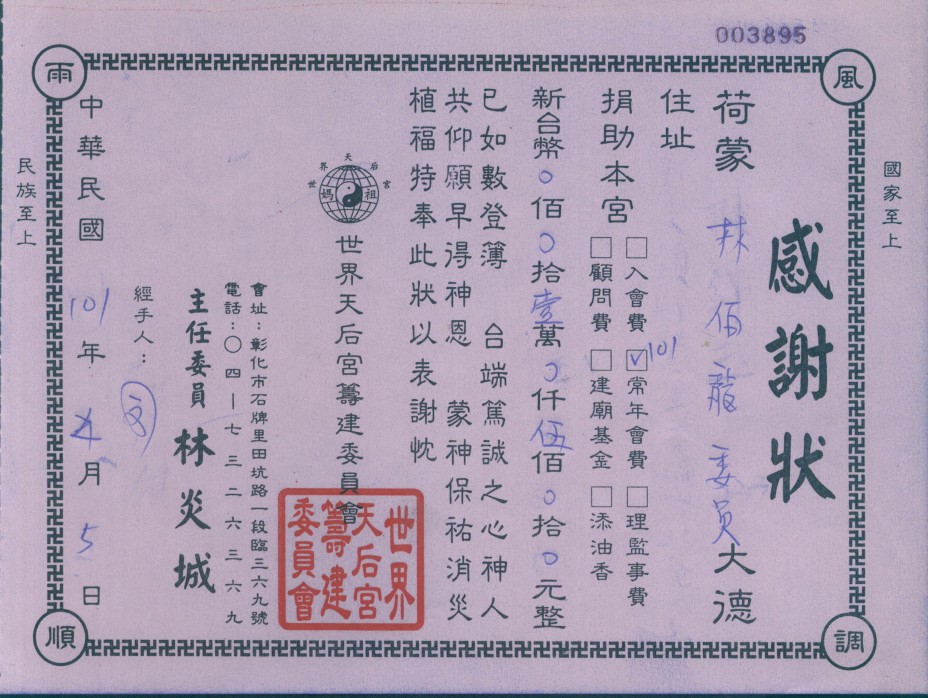 003895
風調雨順
國家至上
民族至上
感謝狀
荷蒙 林佰龍委員 大德
住址
捐助本宮
□入會費 ☑101常年會費 □理監事費
□顧問費 □建廟基金 □添油香
新台幣0佰0拾壹萬0仟伍佰0拾0元整
已如數登簿 台端篤誠之心神人
共仰願早得神恩 蒙神保祐消災
植福特奉此狀以表謝忱
世界天后宮
媽祖
世界天后宮籌建委員會
會址：彰化市石牌里田坑路一段臨三六九號
電話：〇四-七三二六三六九
主任委員 林炎城
經手人：
中華民國101年 月5日
世界天后宮籌建委員會